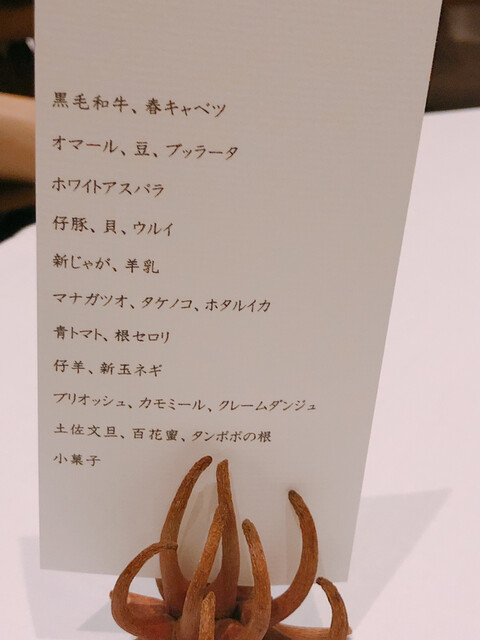 黒毛和牛、春キャベツ
オマール、豆、ブッラータ
ホワイトアスパラ
仔豚、貝、ウルイ
新じゃが、羊乳
マナガツオ、タケノコ、ホタルイカ
青トマト、根セロリ
仔羊、新玉ネギ
ブリオッシュ、カモミール、クレームダンジュ
土佐文旦、百花蜜、タンポポの根
小菓子